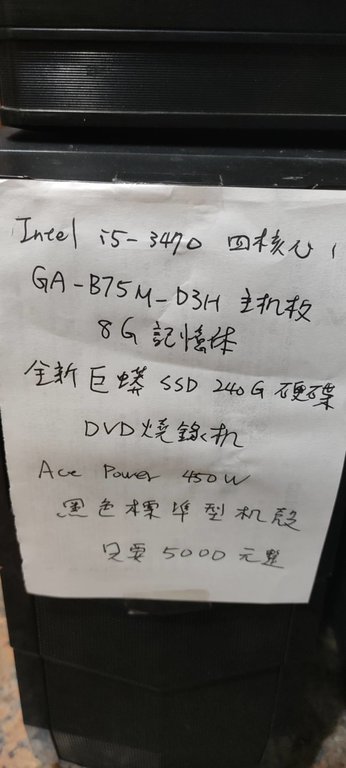 Intel i5-3470 四核心
GA-B75M-D3H 主机板
8G 記憶体
全新巨蟒 SSD 240G 硬碟
DVD燒錄机
Ace Power 450W
黑色標準型机殼
只要 5000 元整